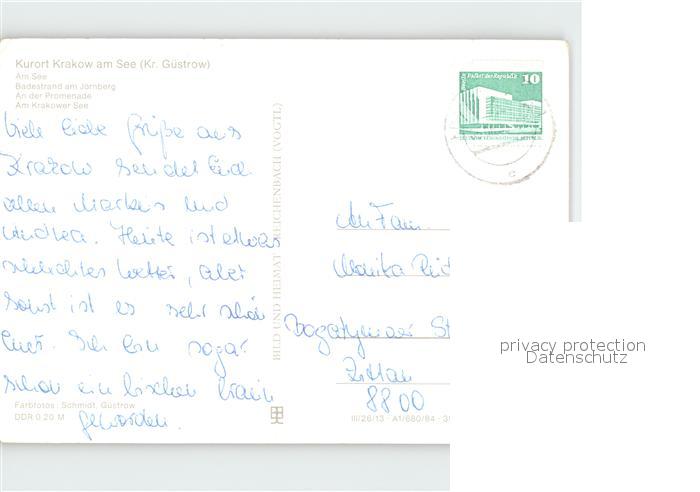 Kurort Krakow am See (Kr. Güstrow)
Am See
Badestrand am Jörnberg
An der Promenade
Am Krakower See
Viele liebe Grüße aus
Krakow sendet Euch
allen Markus und
Andrea. Heute ist etwas
schlechtes Wetter, aber
sonst ist es sehr schön
hier. Ich bin sogar
schon ein bischen braun
geworden.
Farbfotos: Schmidt, Güstrow
DDR 0.20 M
BILD UND HEIMAT REICHENBACH (VOGTL)
Palast der Republik 10
An Fam.
Monika
Bogatynaer St
Zittau
8800
III/26/13 · A1/680/84 · 3
privacy protection
Datenschutz